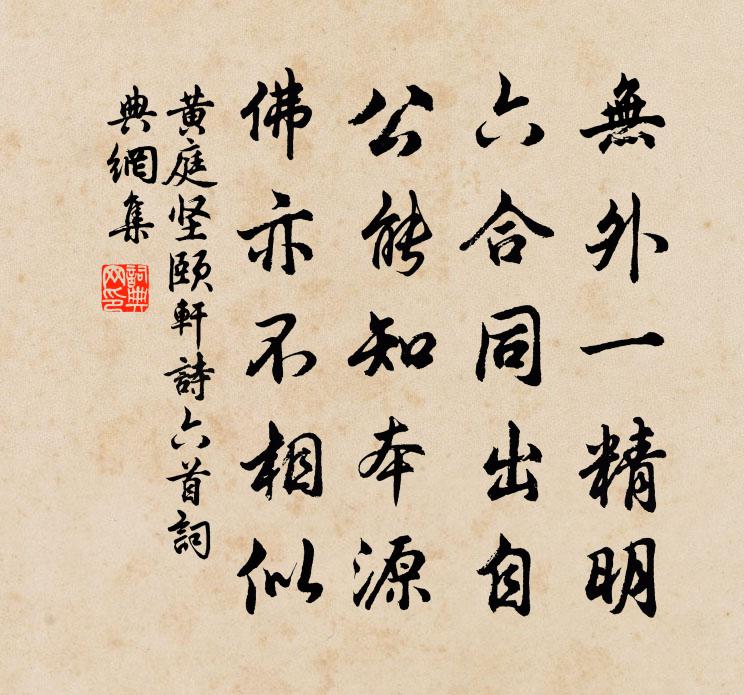 無外一精明
六合同出自
公能知本源
佛亦不相似
黄庭坚頤軒詩六首詞
典網集
詞典
网印